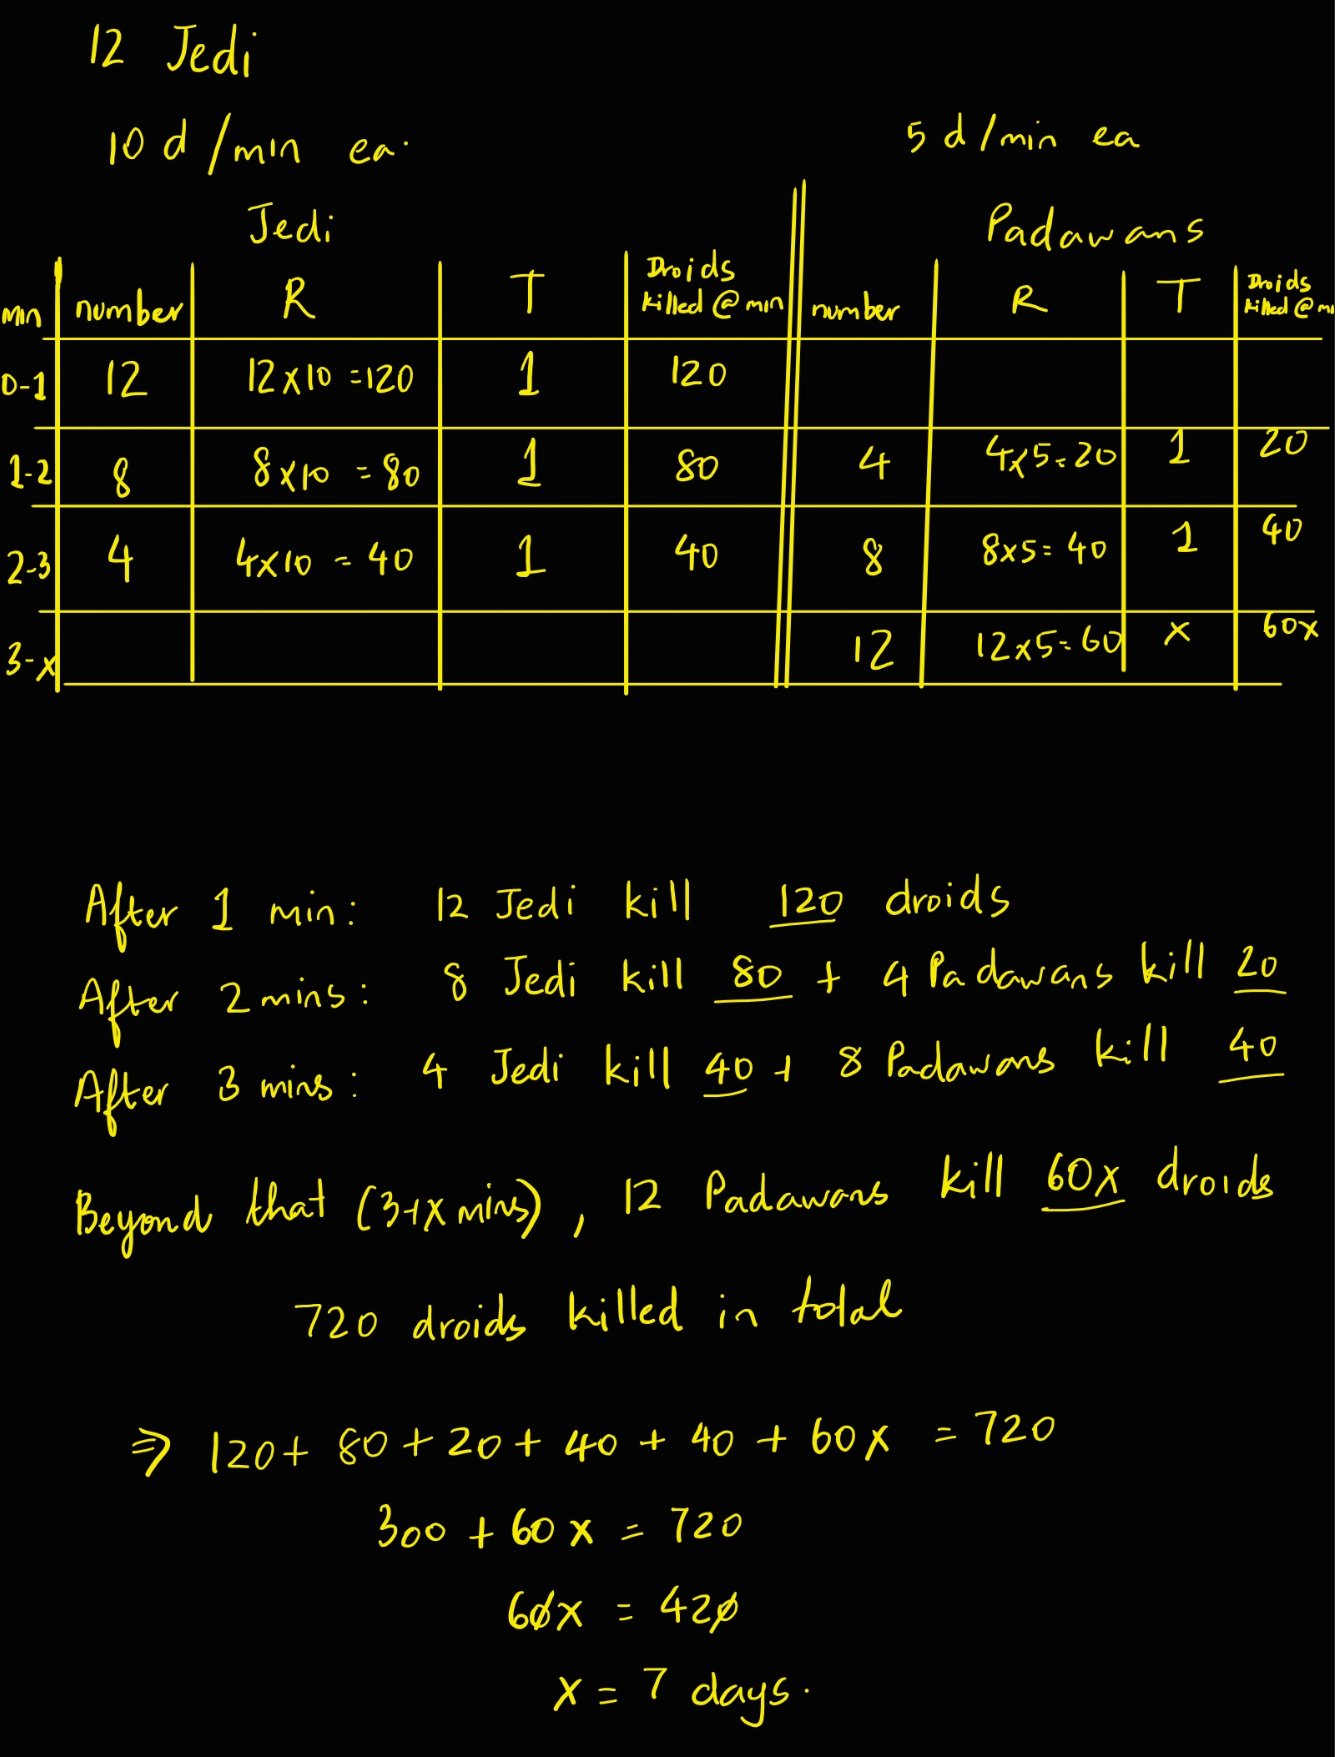 12 Jedi
10 d/min ea. 5 d/min ea
Jedi Padawans
min number R T Droids killed @ min number R T Droids killed @ mi
0-1 12 12x10=120 1 120
1-2 8 8x10=80 1 80 4 4x5=20 1 20
2-3 4 4x10=40 1 40 8 8x5=40 1 40
3-x 12 12x5=60 x 60x
After 1 min: 12 Jedi kill 120 droids
After 2 mins: 8 Jedi kill 80 + 4 Padawans kill 20
After 3 mins: 4 Jedi kill 40 + 8 Padawans kill 40
Beyond that (3+x mins), 12 Padawans kill 60x droids
720 droids killed in total
⇒ 120+ 80 + 20 + 40 + 40 + 60x = 720
300 + 60x = 720
60x = 420
x = 7 days.